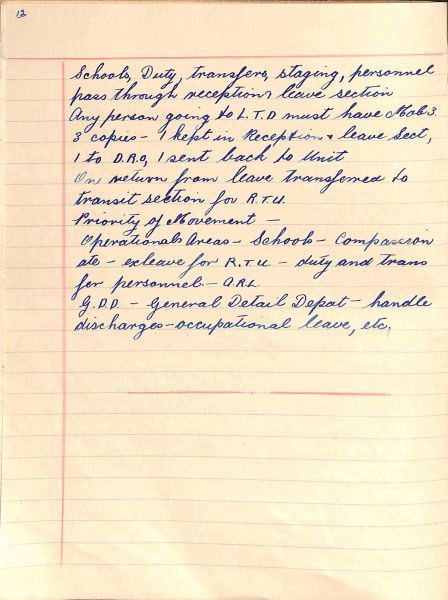 12
Schools, Duty, transfers, staging, personnel
pass through reception & leave section
Any person going to L.T.D must have Mob 3.
3 copies - 1 kept in Reception & leave Sect,
1 to D.R.O, 1 sent back to Unit
On return from leave transferred to
transit section for R.T.U.
Priority of Movement -
Operational Areas - Schools - Compassion
ate - exleave for R.T.U. - duty and trans
fer personnel - A.R.L.
G.D.D. - General Detail Depot - handle
discharges - occupational leave, etc.